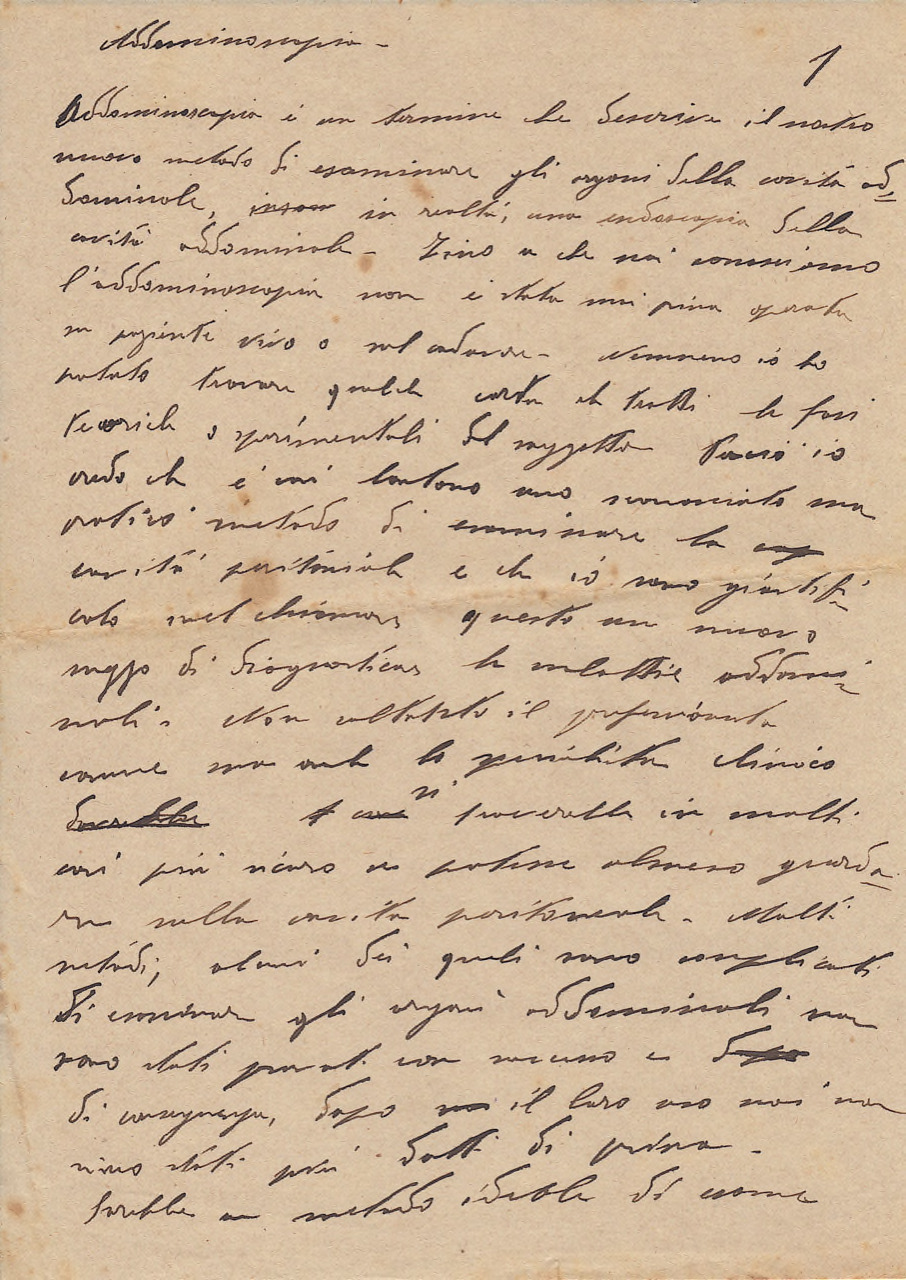 Addominoscopia -
1
Addominoscopia è un termine che descrive il nostro
nuovo metodo di esaminare gli organi della cavità ad=
dominale, in realtà, una endoscopia della
cavità addominale - Fino a che noi conosciamo
l'addominoscopia non è stata mai prima operata
in paziente vivo o sul cadavere - Nemmeno io ho
potuto trovare qualche carta che tratti le fasi
teoriche o sperimentali del soggetto Perciò io
credo che è così lontano uno sconosciuto ma
pratico metodo di esaminare la
cavità peritoniale e che io sono giustifi=
cato nel chiamare questo un nuovo
mezzo di diagnosticare le malattie addomi=
nali - Non soltanto il professionista
comune ma anche lo specialista clinico
si troverebbe in molti
casi più sicuro se potesse almeno guarda=
re nella cavità peritoneale - Molti
metodi, alcuni dei quali sono complicati
di esaminare gli organi addominali non
sono stati provati con successo e
di conseguenza, dopo il loro uso noi non
siamo stati più dotti di prima -
Sarebbe un metodo ideale di esame